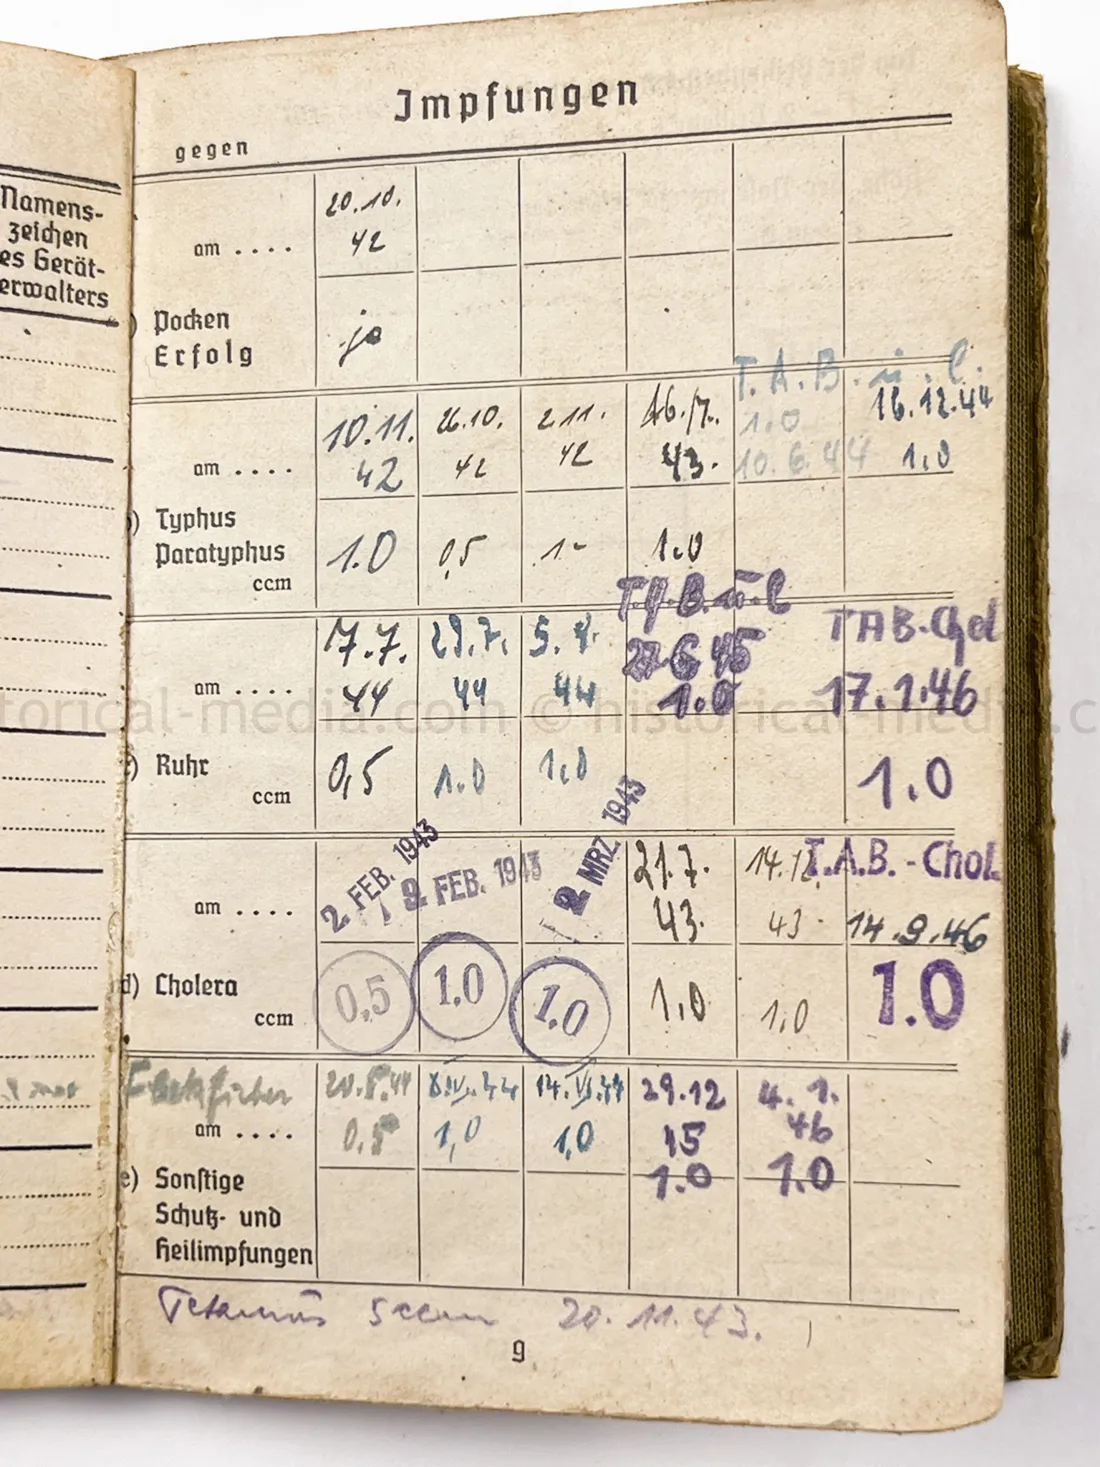 Namens-
zeichen
es Gerät-
erwalters
Impfungen
gegen
am .... 20.10. 42
) Pocken
Erfolg ja
T.A.B. u. C.
am .... 10.11. 42 26.10. 42 2.11. 42 16.7. 43. 1.0 10.6.44 16.12.44 1,0
) Typhus
Paratyphus
ccm 1.0 0,5 1.- 1.0
T.A.B. u. C
TAB-Chol
am .... 17.7. 44 29.7. 44 5.8. 44 27.6.45 1.0 17.1.46
) Ruhr
ccm 0,5 1.0 1,0 1.0
T.A.B.-Chol.
am .... 2. FEB. 1943 9. FEB. 1943 2. MRZ. 1943 21.7. 43. 14.12. 43. 14.9.46
d) Cholera
ccm 0,5 1.0 1.0 1.0 1.0 1.0
Fleckfieber 20.5.44 14.VI.44 29.12 4.1.
am .... 0.5 1,0 1,0 45 46
1.0 1.0
e) Sonstige
Schutz- und
Heilimpfungen
Tetanus Serum 20.11.43.
9
torical-media.com © historical-media.c